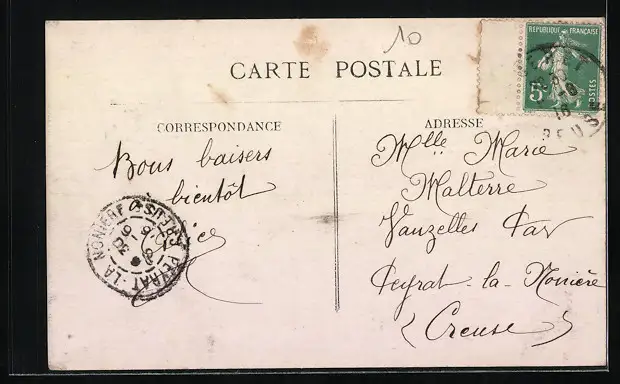 10
CARTE POSTALE
REPUBLIQUE FRANÇAISE
5c
POSTES
CORRESPONDANCE
ADRESSE
Bons baisers
bientôt
Mlle Marie
Malterre
Vauzelles Par
Peyrat-la-Nonière
(Creuse)
PEYRAT-LA NONIERE CREUSE